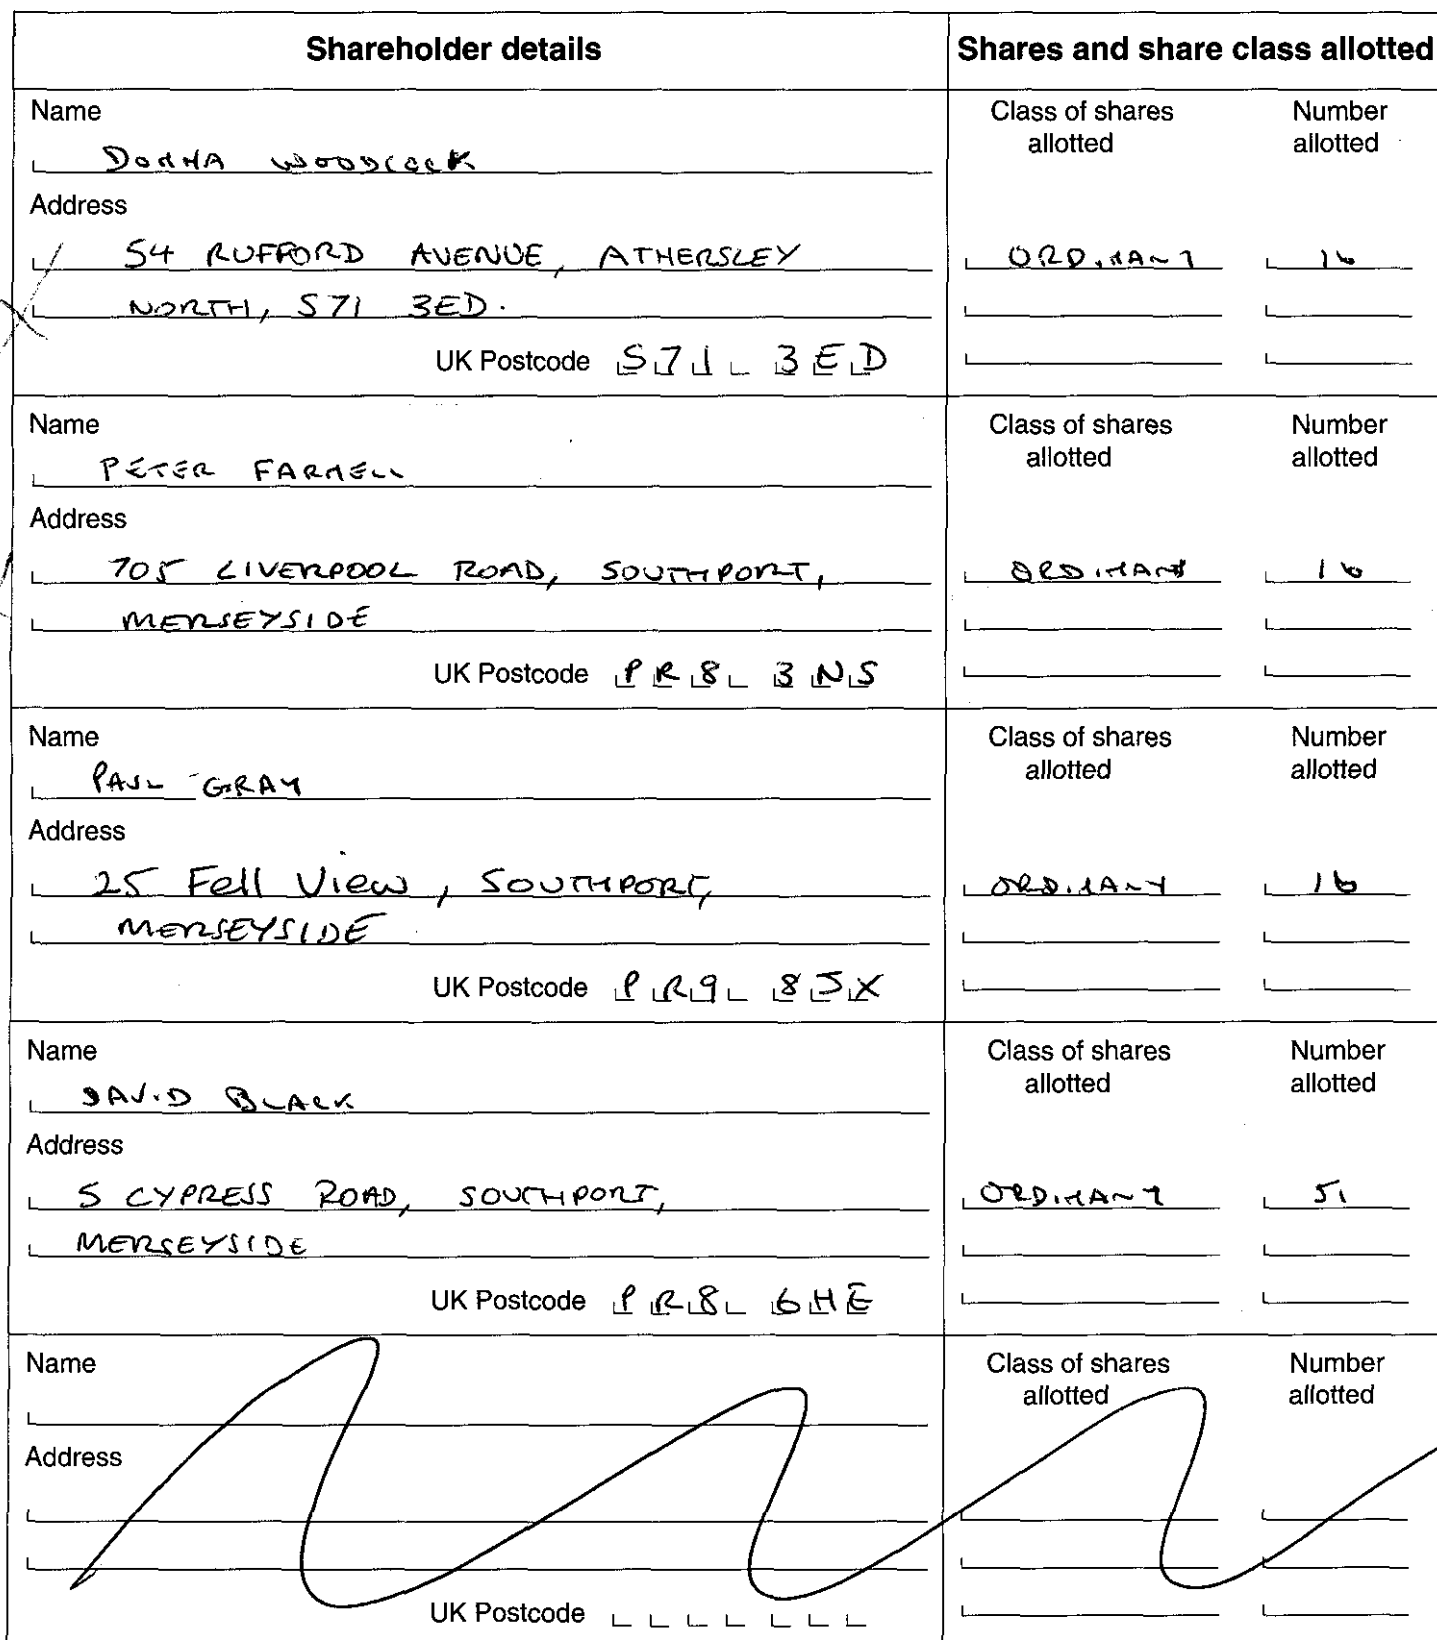 Shareholder details
Shares and share class allotted
Name
DONNA WOODCOCK
Address
54 RUFFORD AVENUE, ATHERSLEY
NORTH, S71 3ED.
UK Postcode S71 3ED
Class of shares allotted
Number allotted
ORDINARY 16
Name
PETER FARNELL
Address
705 LIVERPOOL ROAD, SOUTHPORT,
MERSEYSIDE
UK Postcode PR8 3NS
Class of shares allotted
Number allotted
ORDINARY 16
Name
PAUL GRAY
Address
25 Fell View, SOUTHPORT,
MERSEYSIDE
UK Postcode PR9 8JX
Class of shares allotted
Number allotted
ORDINARY 16
Name
DAVID BLACK
Address
5 CYPRESS ROAD, SOUTHPORT,
MERSEYSIDE
UK Postcode PR8 6HE
Class of shares allotted
Number allotted
ORDINARY 51
Name
Address
UK Postcode
Class of shares allotted
Number allotted